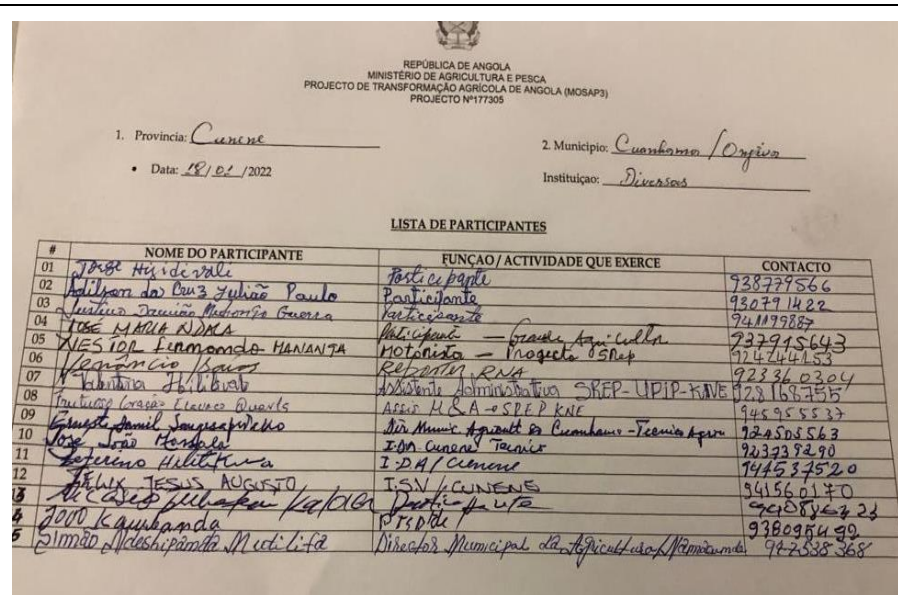 REPÚBLICA DE ANGOLA
MINISTÉRIO DE AGRICULTURA E PESCA
PROJECTO DE TRANSFORMAÇÃO AGRÍCOLA DE ANGOLA (MOSAP3)
PROJECTO Nº177305
1. Provincia: Cunene 2. Municipio: Cuanhama / Ongiva
• Data: 18/01/2022 Instituiçao: Diversos
LISTA DE PARTICIPANTES
# NOME DO PARTICIPANTE FUNÇAO/ ACTIVIDADE QUE EXERCE CONTACTO
01 Jorge Participante 938779566
02 Adilson da Cruz Julião Paulo Participante 930791422
03 Justino Damião Guerra Participante 941199887
04 JOSÉ MARIA NDALA Participante — Grande Agricultor 937915643
05 NESTOR Fernando HANANGA Motorista — Projecto SREP 924244153
06 Venâncio Repórter RNA 923360304
07 Assistente Administrativa SREP-UPIP-KNE 928168755
08 Frutuoso Duarte Assis M&A - SREP KNE 945955537
09 Ernesto Dir Munic Agricult - Tecnico 924505563
10 José João I.DA Cunene Tecnico 923739290
11 Zeferino I.D.A / Cunene 947537520
12 FÉLIX JESUS AUGUSTO I.S.V / CUNENE 941560170
13 Participante
4 Kajubanda 938095492
5 Simão Ndeshipanda Mutilifa Director Municipal da Agricultura/Namacunde 927538368